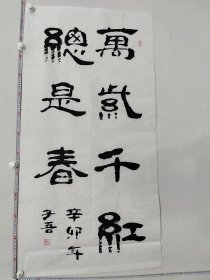 萬紫千紅
總是春
辛卯年
子吾